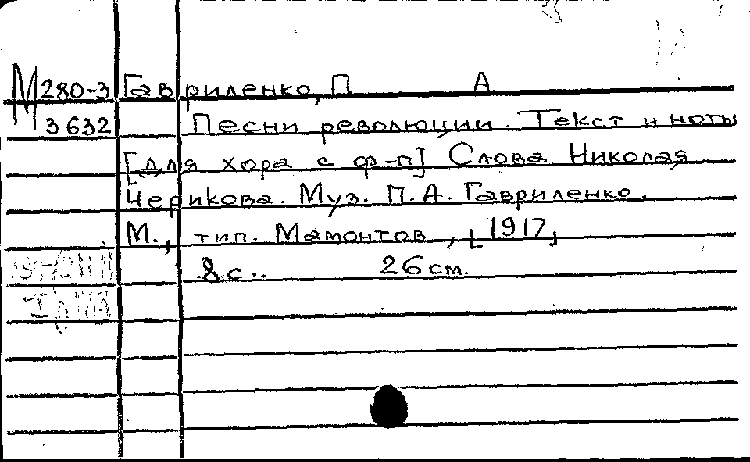 М 280-3 Гавриленко, П А
3632 Песни революции. Текст и ноты
[для хора с ф-п] Слова Николая
Черикова. Муз. П. А. Гавриленко.
М., тип. Мамонтов, [1917]
8 с.. 26 см.